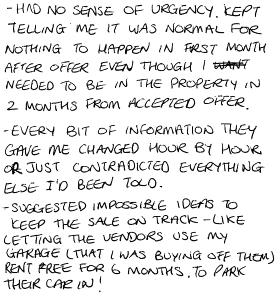 - HAD NO SENSE OF URGENCY. KEPT
TELLING ME IT WAS NORMAL FOR
NOTHING TO HAPPEN IN FIRST MONTH
AFTER OFFER EVEN THOUGH I WANT
NEEDED TO BE IN THE PROPERTY IN
2 MONTHS FROM ACCEPTED OFFER.
- EVERY BIT OF INFORMATION THEY
GAVE ME CHANGED HOUR BY HOUR.
OR JUST CONTRADICTED EVERYTHING
ELSE I'D BEEN TOLD.
- SUGGESTED IMPOSSIBLE IDEAS TO
KEEP THE SALE ON TRACK - LIKE
LETTING THE VENDORS USE MY
GARAGE (THAT I WAS BUYING OFF THEM)
RENT FREE FOR 6 MONTHS. TO PARK
THEIR CAR IN!